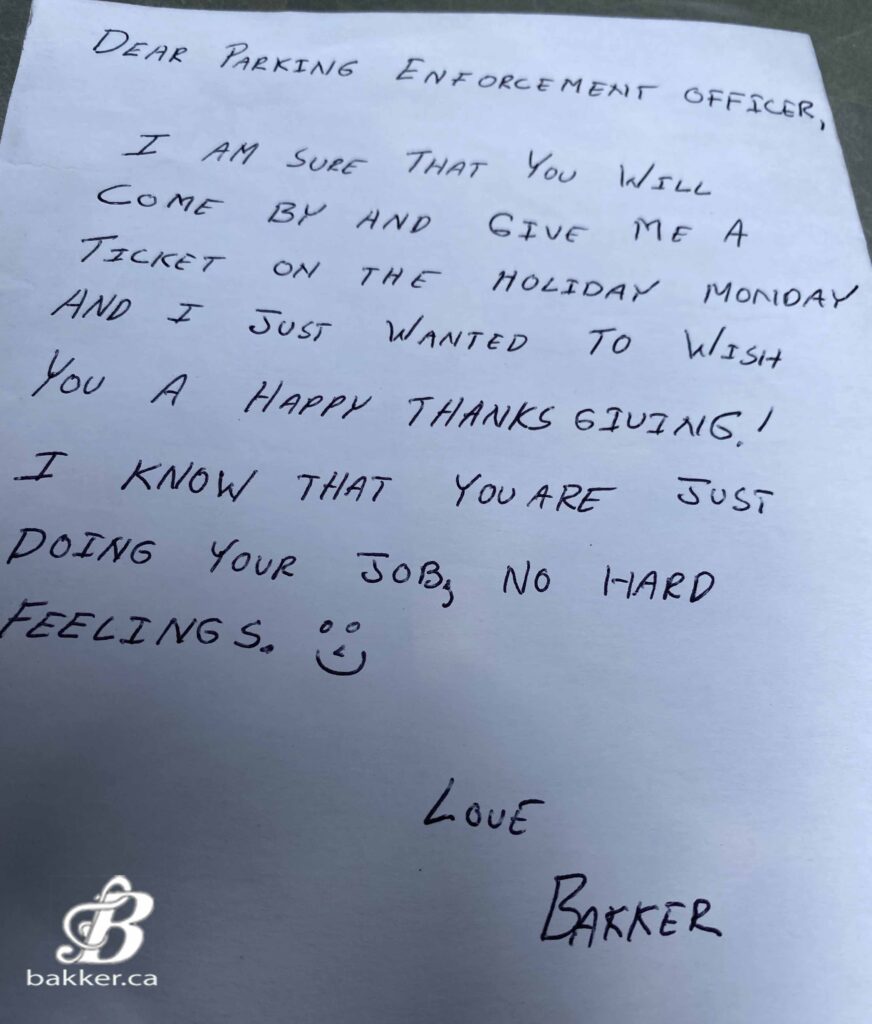 DEAR PARKING ENFORCEMENT OFFICER,
I AM SURE THAT YOU WILL
COME BY AND GIVE ME A
TICKET ON THE HOLIDAY MONDAY
AND I JUST WANTED TO WISH
YOU A HAPPY THANKSGIVING!
I KNOW THAT YOU ARE JUST
DOING YOUR JOB, NO HARD
FEELINGS.
LOVE
BAKKER
B
bakker.ca